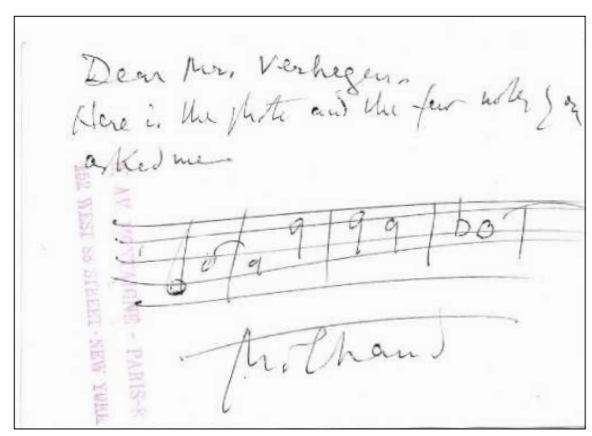 Dear Mr. Verhegen.
Here is the photo and the few notes you
asked me
Milhaud
AV MONTAIGNE - PARIS-8
152 WEST 58 STREET - NEW YORK